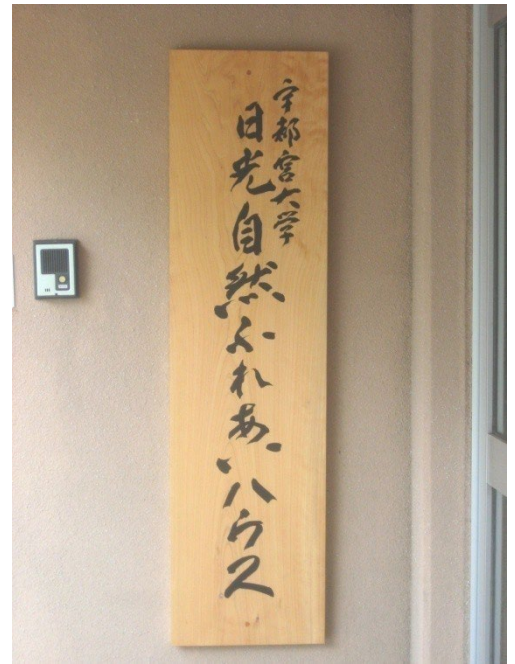 宇都宮大学
日光自然ふれあいハウス